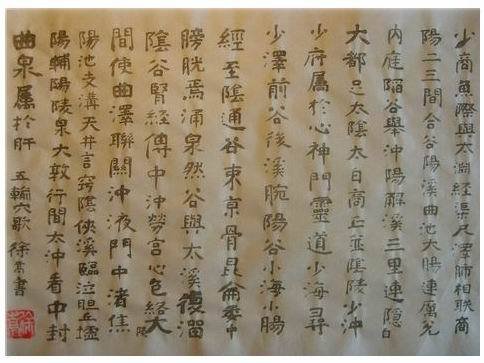 少商魚際與太淵經渠尺澤肺相聯商
陽二三間合谷陽溪曲池大腸連厲兌
内庭陷谷舉沖陽解溪三里連隱白
大都之太陰太白商丘並陰陵少沖
少府屬於心神門靈道少海尋
少澤前谷後溪腕陽谷小海小腸
經至陰通谷束京骨昆侖委中
膀胱焉涌泉然谷與太溪復溜
陰谷腎經傳中沖勞宮心包絡大陵
間使曲澤聯關沖液門中渚焦
陽池支溝天井言竅陰俠溪臨泣胆丘墟
陽輔陽陵泉大敦行間太沖看中封
曲泉属於肝 五輸穴歌 徐書